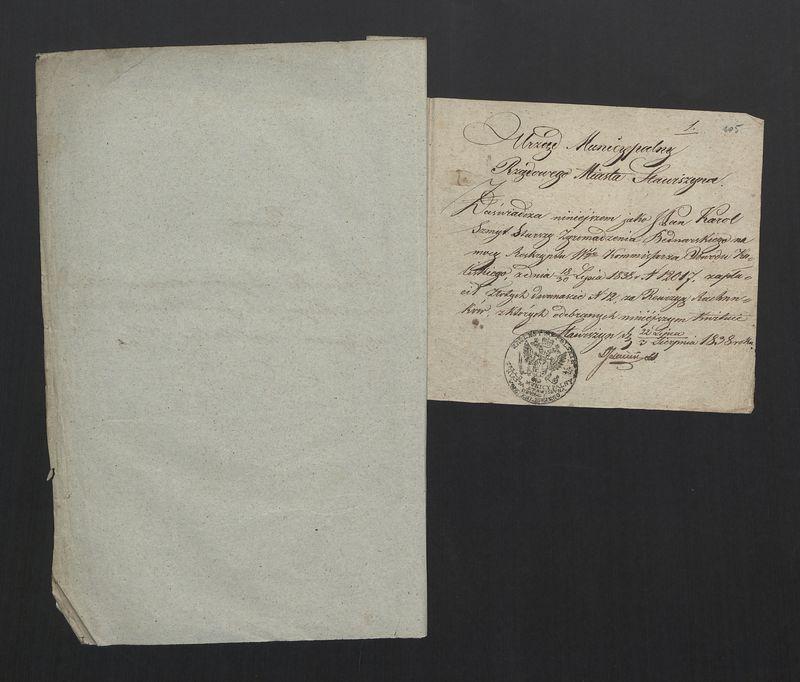 1.
105
Urząd Municypalny
Rządowego Miasta Stawiszyna.
Zaświadcza niniejszem jako Pan Karol
Szmyt Starszy Zgromadzenia Bednarskiego na
mocy Reskryptu Wgo Kommissarza Obwodu Ka-
liskiego z dnia 18/30 Lipca 1838 r. N 12087 zapła-
cił Złotych dwanaście N 12, za Rewizyą Rachun-
ków, z których odebranych niniejszym kwituie
Stawiszyn d. 22 Lipca
3 Sierpnia 1838 roku